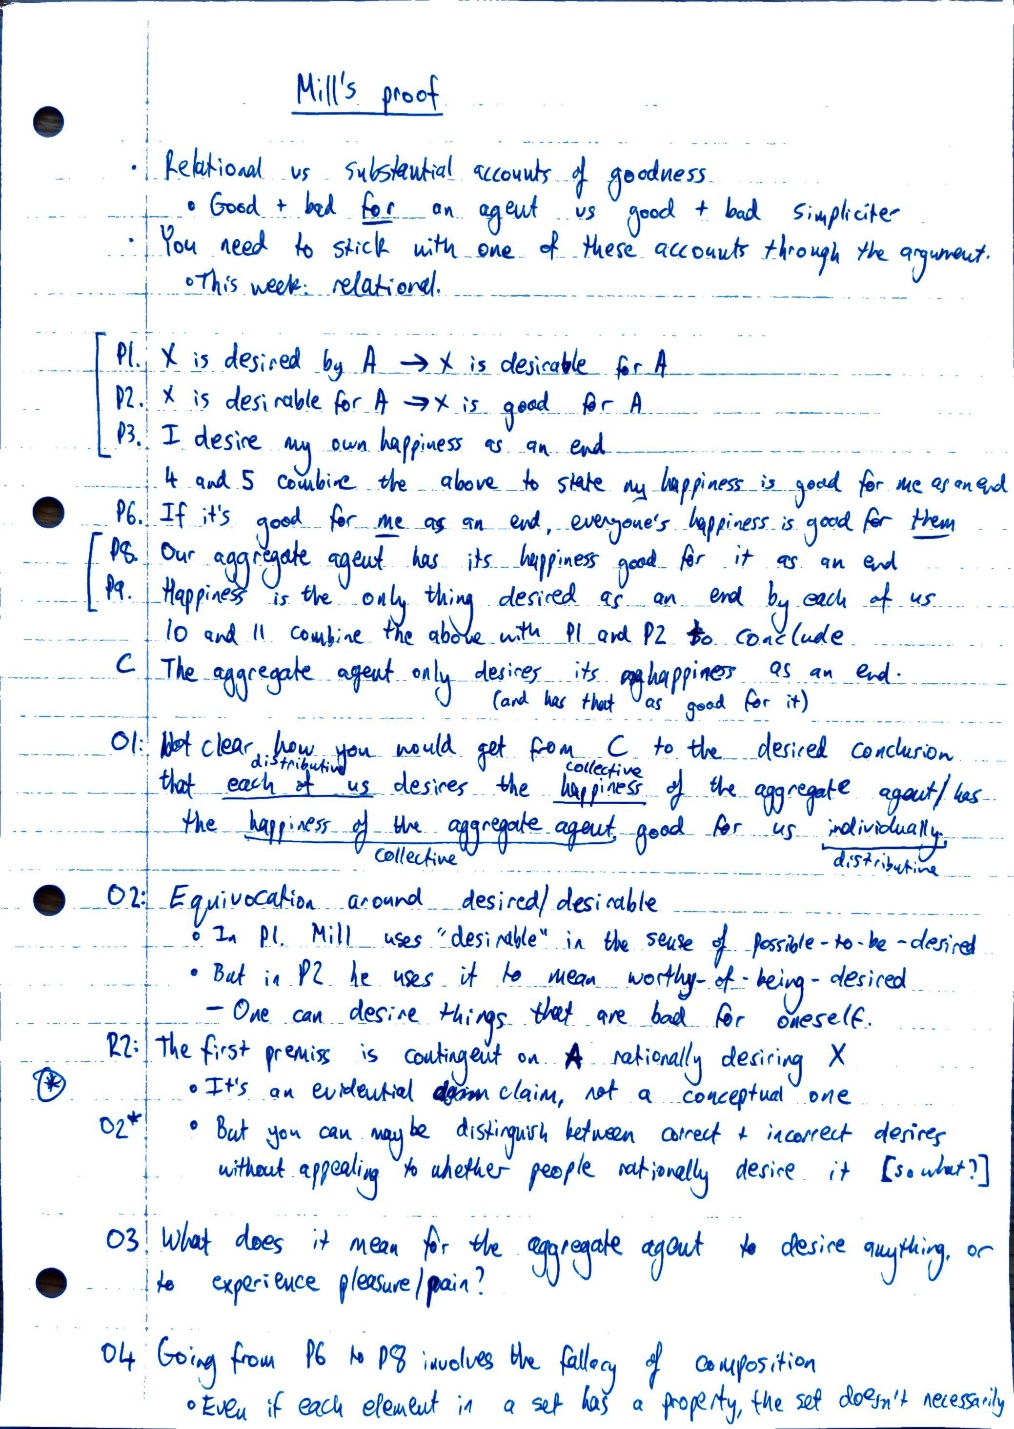 Mill's proof
· Relational vs substantial accounts of goodness
• Good + bad for an agent vs good + bad simpliciter
· You need to stick with one of these accounts through the argument.
• This week: relational.
P1. X is desired by A → X is desirable for A
P2. X is desirable for A → X is good for A
P3. I desire my own happiness as an end
4 and 5 combine the above to state my happiness is good for me as an end
P6. If it's good for me as an end, everyone's happiness is good for them
P8. Our aggregate agent has its happiness good for it as an end
P9. Happiness is the only thing desired as an end by each of us
10 and 11 combine the above with P1 and P2 to conclude
C The aggregate agent only desires its happiness as an end.
(and has that as good for it)
O1: Not clear how you would get from C to the desired conclusion
distributive collective
that each of us desires the happiness of the aggregate agent/has
the happiness of the aggregate agent good for us individually.
collective distributive
O2: Equivocation around desired/desirable
• In P1. Mill uses "desirable" in the sense of possible-to-be-desired
• But in P2 he uses it to mean worthy-of-being-desired
– One can desire things that are bad for oneself.
R2: The first premiss is contingent on A rationally desiring X
(*) • It's an evidential claim, not a conceptual one
O2* • But you can maybe distinguish between correct + incorrect desires
without appealing to whether people rationally desire it [so what?]
O3. What does it mean for the aggregate agent to desire anything, or
to experience pleasure/pain?
O4 Going from P6 to P8 involves the fallacy of composition
• Even if each element in a set has a property, the set doesn't necessarily